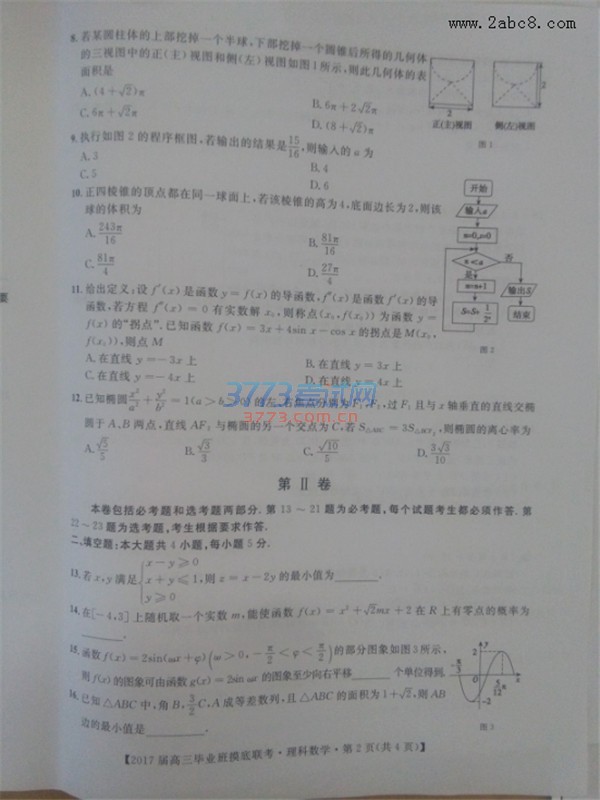 www.2abc8.com
8.若某圆柱体的上部挖掉一个半球,下部挖掉一个圆锥后所得的几何体
的三视图中的正(主)视图和侧(左)视图如图1所示,则此几何体的表
面积是
A.(4+√2)π
B.6π+2√2π
C.6π+√2π
D.(8+√2)π
2
2
正(主)视图
侧(左)视图
图1
9.执行如图2的程序框图,若输出的结果是15/16,则输入的a为
A.3
B.4
C.5
D.6
10.正四棱锥的顶点都在同一球面上,若该棱锥的高为4,底面边长为2,则该
球的体积为
A.243π/16
B.81π/16
C.81π/4
D.27π/4
开始
输入a
n=0,s=0
n<a
否
是
n=n+1
输出S
S=S+1/2ⁿ
结束
图2
11.给出定义:设f′(x)是函数y=f(x)的导函数,f″(x)是函数f′(x)的导
函数,若方程f″(x)=0有实数解x₀,则称点(x₀,f(x₀))为函数y=
f(x)的“拐点”.已知函数f(x)=3x+4sin x-cos x的拐点是M(x₀,
f(x₀)),则点M
A.在直线y=-3x上
B.在直线y=3x上
C.在直线y=-4x上
D.在直线y=4x上
3773考试网
3773.com.cn
12.已知椭圆x²/a²+y²/b²=1(a>b>0)的左、右焦点分别为F₁,F₂,过F₁且与x轴垂直的直线交椭
圆于A、B两点,直线AF₂与椭圆的另一个交点为C,若S△ABC=3S△BCF₂,则椭圆的离心率为
A.√5/5
B.√3/3
C.√10/5
D.3√3/10
第Ⅱ卷
本卷包括必考题和选考题两部分.第13~21题为必考题,每个试题考生都必须作答.第
22~23题为选考题,考生根据要求作答.
二、填空题:本大题共4小题,每小题5分.
13.若x,y满足{x-y≥0
x+y≤1,则z=x-2y的最小值为
y≥0
14.在[-4,3]上随机取一个实数m,能使函数f(x)=x²+√2mx+2在R上有零点的概率为
.
15.函数f(x)=2sin(ωx+φ)(ω>0,-π/2<φ<π/2)的部分图象如图3所示,
则f(x)的图象可由函数g(x)=2sin ωx的图象至少向右平移 个单位得到.
y
2
-π/3
5/12π
x
-2
图3
16.已知△ABC中,角B,3/2C,A成等差数列,且△ABC的面积为1+√2,则AB
边的最小值是 .
【2017届高三毕业班摸底联考·理科数学·第2页(共4页)】